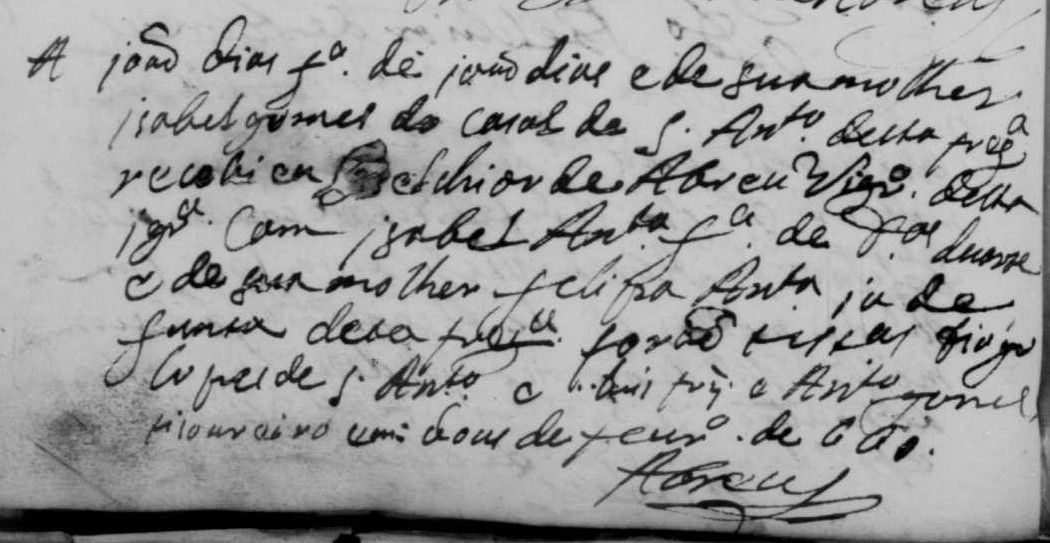 A joão dias fº. de joão dias e de sua molher
isabel gomes do casal de S. Antº. desta fregª
recebi eu Belchior de Abreu Vigrº. desta
igrª. Com isabel Antª fª. de duarte
e de sua molher felipa Anta ja de
funta desta fregª. forão testas. diogo
lopes de S. Antº. e Luis frz. e Antº gomes
tisoureiro em dous de feurº. de
Abreu